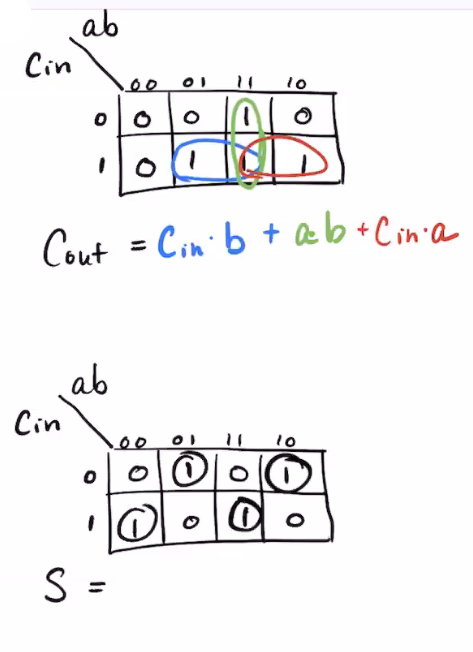 ab
Cin
00 01 11 10
0 0 0 1 0
1 0 1 1 1
Cout = Cin·b + a·b + Cin·a
ab
Cin
00 01 11 10
0 0 1 0 1
1 1 0 1 0
S =